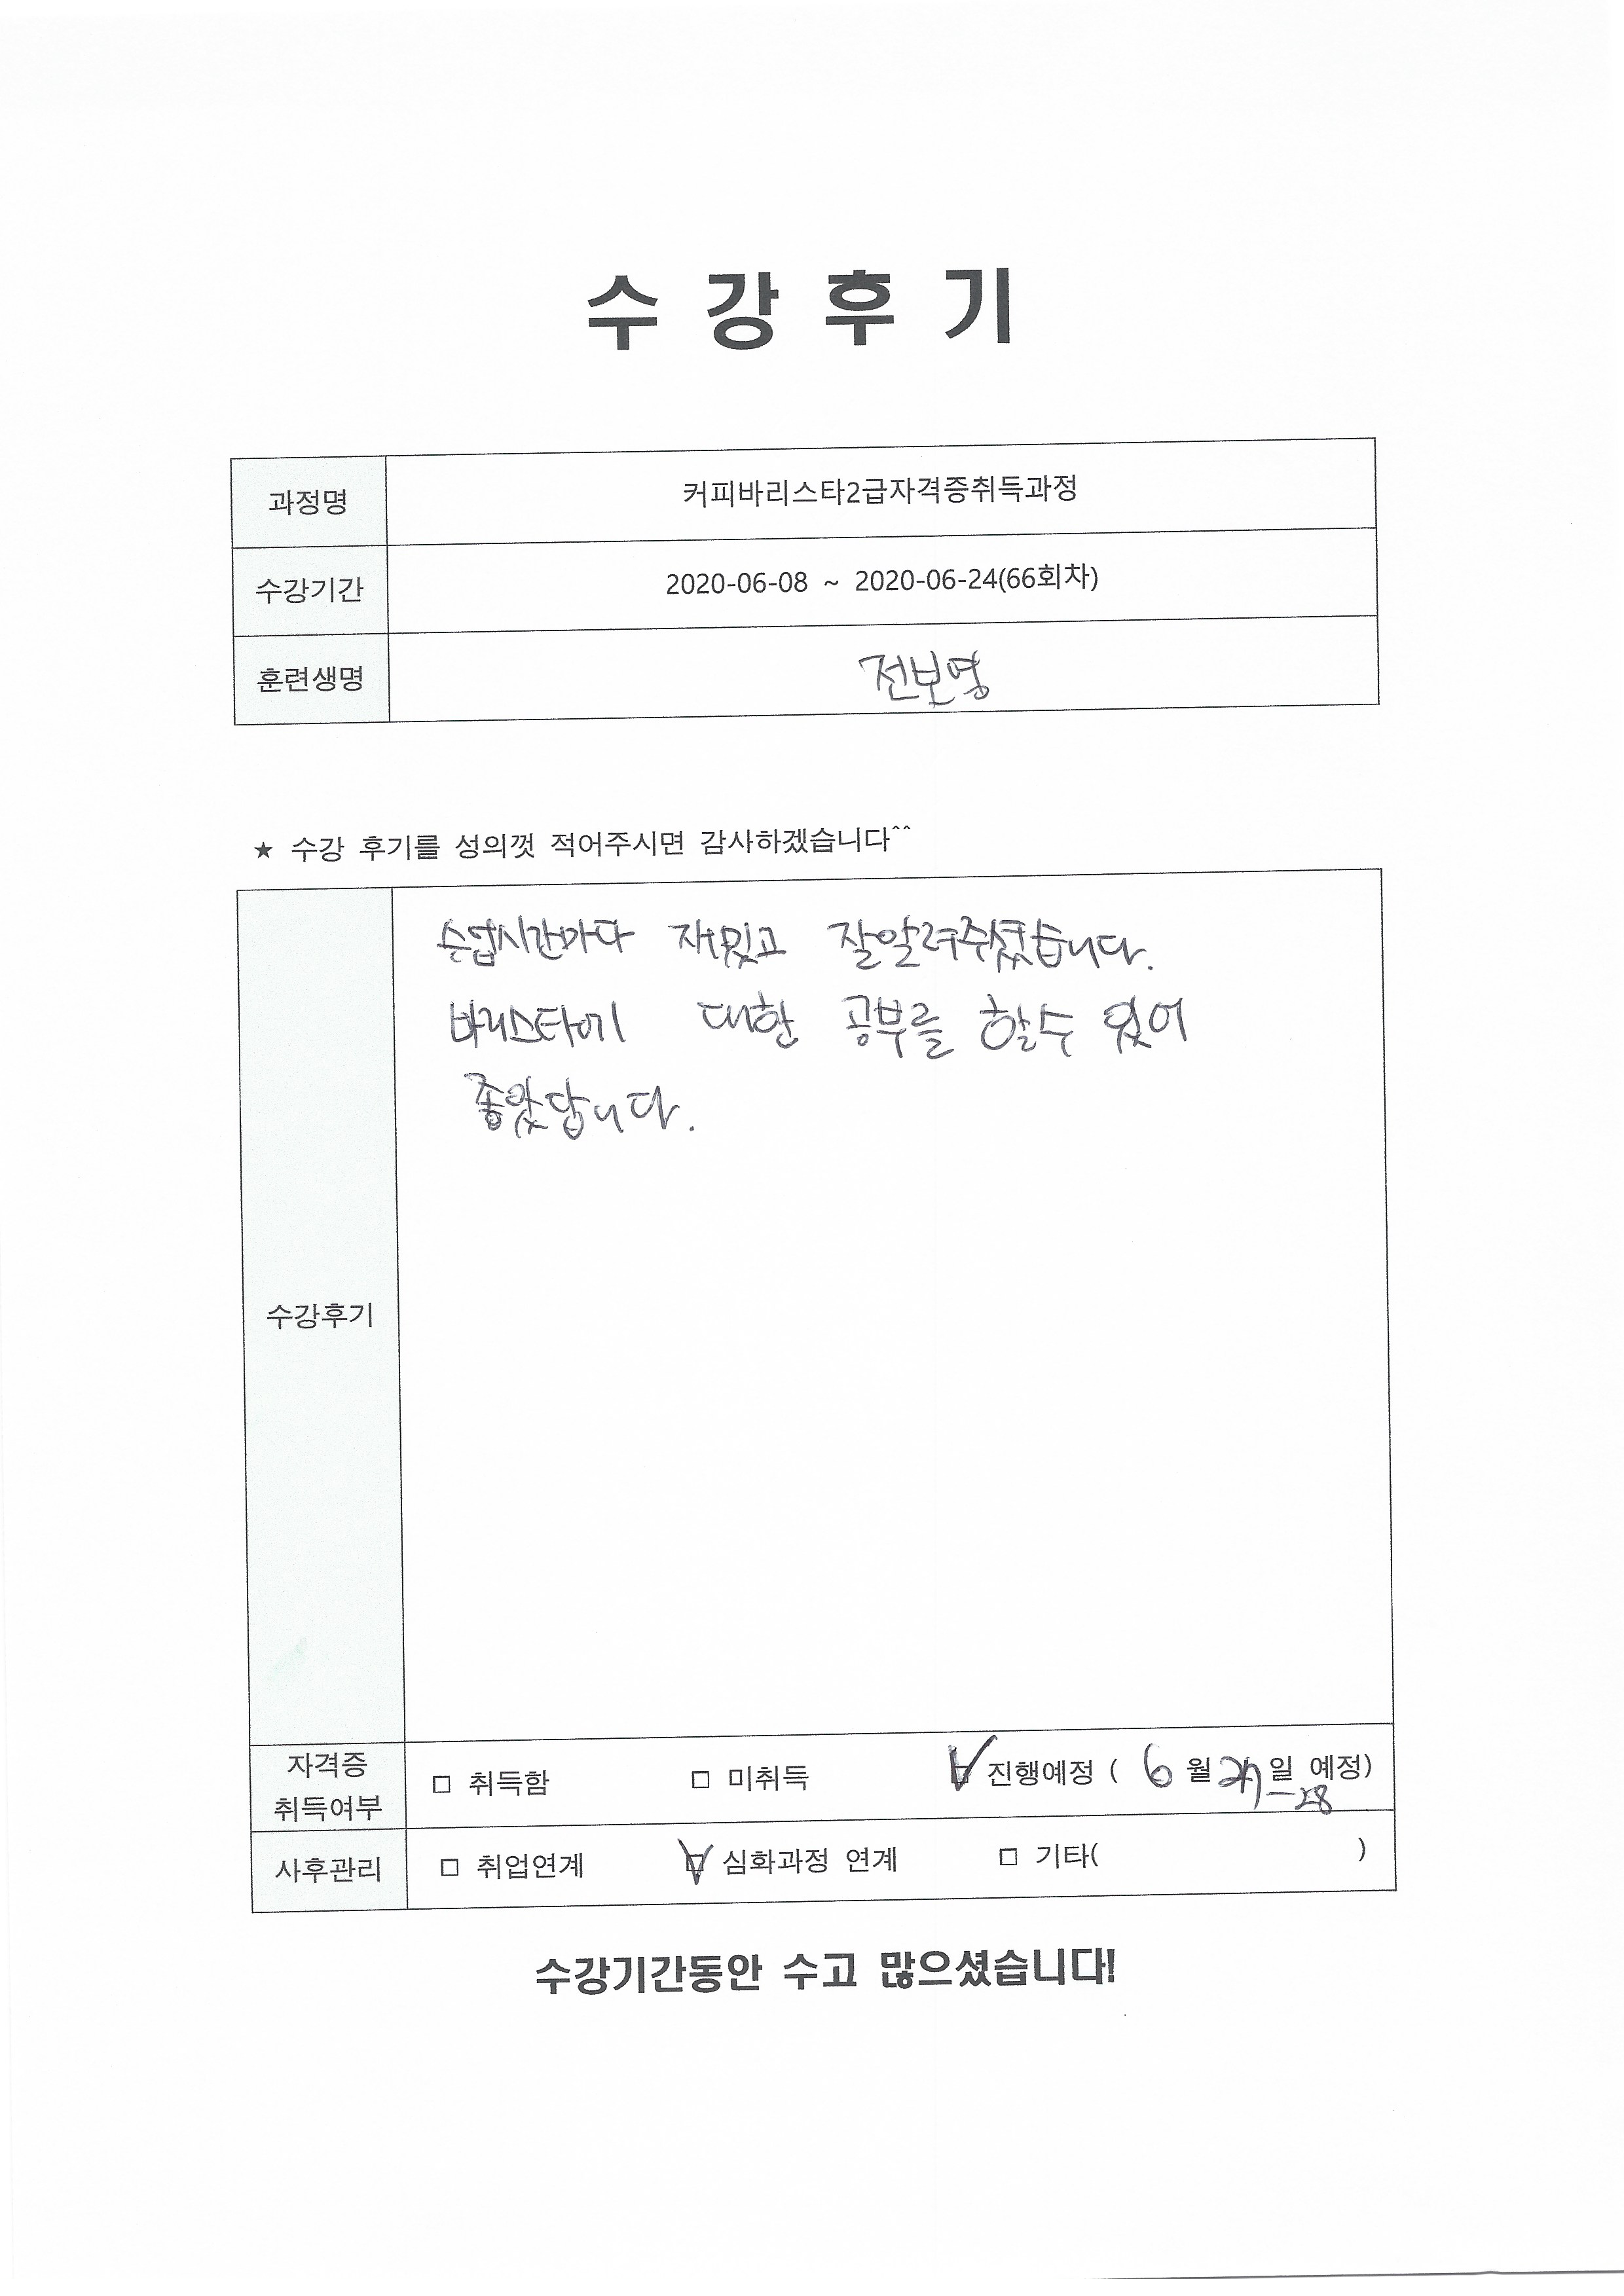 수 강 후 기
과정명 커피바리스타2급자격증취득과정
수강기간 2020-06-08 ~ 2020-06-24(66회차)
훈련생명 전보영
★ 수강 후기를 성의껏 적어주시면 감사하겠습니다^^
수업시간마다 재밌고 잘알려주셨습니다.
바리스타에 대한 공부를 할수 있어
좋았답니다.
수강후기
자격증
취득여부
□ 취득함 □ 미취득 ☑ 진행예정 ( 6 월 27 일 예정)
-28
사후관리 □ 취업연계 ☑ 심화과정 연계 □ 기타( )
수강기간동안 수고 많으셨습니다!